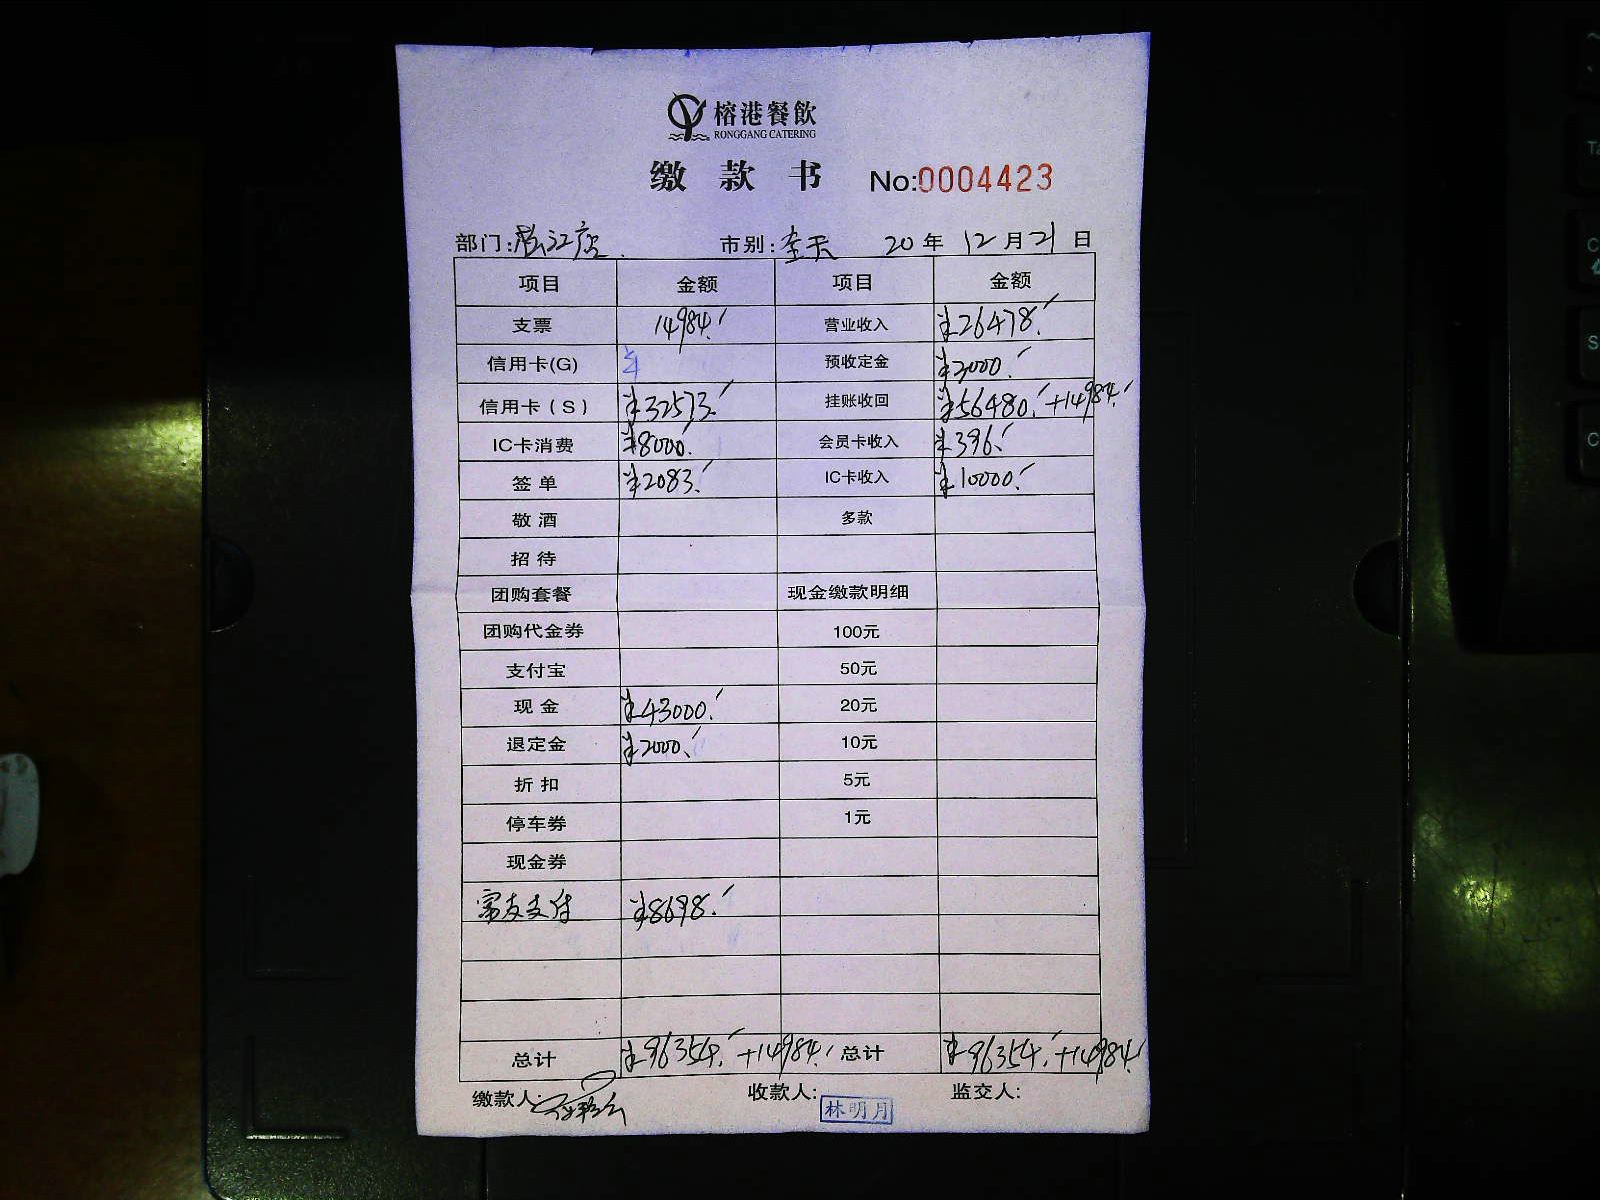 榕港餐飲
RONGGANG CATERING
缴款书 No:0004423
部门:松江店 市别:全天 20年12月21日
项目 金额 项目 金额
支票 14984. 营业收入 ¥26478.
信用卡(G) 预收定金 ¥3000.
信用卡(S) ¥32573. 挂账收回 ¥56480.+14984.
IC卡消费 ¥8000. 会员卡收入 ¥396.
签单 ¥2083. IC卡收入 ¥10000.
敬酒 多款
招待
团购套餐 现金缴款明细
团购代金券 100元
支付宝 50元
现金 ¥43000. 20元
退定金 ¥2000. 10元
折扣 5元
停车券 1元
现金券
富友支付 ¥8698.
总计 ¥96354.+14984. 总计 ¥96354.+14984.
缴款人: 收款人: 林明月 监交人: